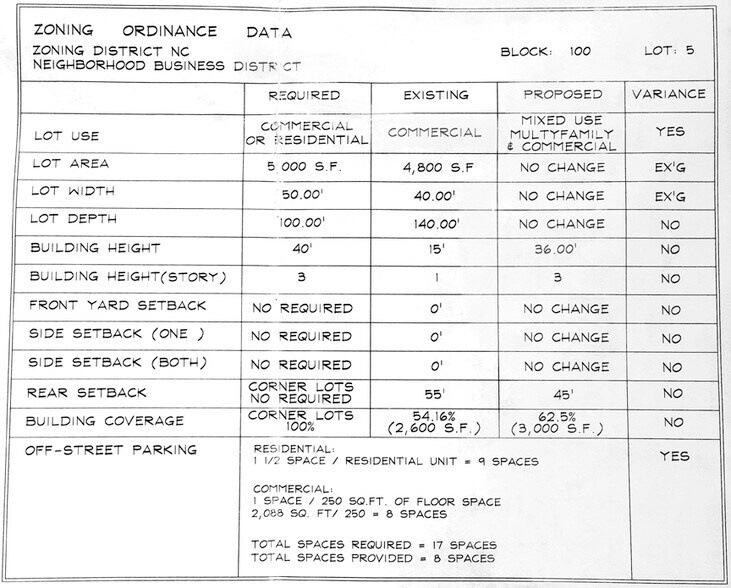 ZONING ORDINANCE DATA
ZONING DISTRICT NC
NEIGHBORHOOD BUSINESS DISTRICT
BLOCK: 100 LOT: 5
REQUIRED EXISTING PROPOSED VARIANCE
LOT USE COMMERCIAL OR RESIDENTIAL COMMERCIAL MIXED USE MULTYFAMILY & COMMERCIAL YES
LOT AREA 5,000 S.F. 4,800 S.F NO CHANGE EX'G
LOT WIDTH 50.00' 40.00' NO CHANGE EX'G
LOT DEPTH 100.00' 140.00' NO CHANGE NO
BUILDING HEIGHT 40' 15' 36.00' NO
BUILDING HEIGHT(STORY) 3 1 3 NO
FRONT YARD SETBACK NO REQUIRED 0' NO CHANGE NO
SIDE SETBACK (ONE ) NO REQUIRED 0' NO CHANGE NO
SIDE SETBACK (BOTH) NO REQUIRED 0' NO CHANGE NO
REAR SETBACK CORNER LOTS NO REQUIRED 55' 45' NO
BUILDING COVERAGE CORNER LOTS 100% 54.16% (2,600 S.F.) 62.5% (3,000 S.F.) NO
OFF-STREET PARKING YES
RESIDENTIAL:
1 1/2 SPACE / RESIDENTIAL UNIT = 9 SPACES
COMMERCIAL:
1 SPACE / 250 SQ.FT. OF FLOOR SPACE
2,088 SQ. FT/ 250 = 8 SPACES
TOTAL SPACES REQUIRED = 17 SPACES
TOTAL SPACES PROVIDED = 8 SPACES